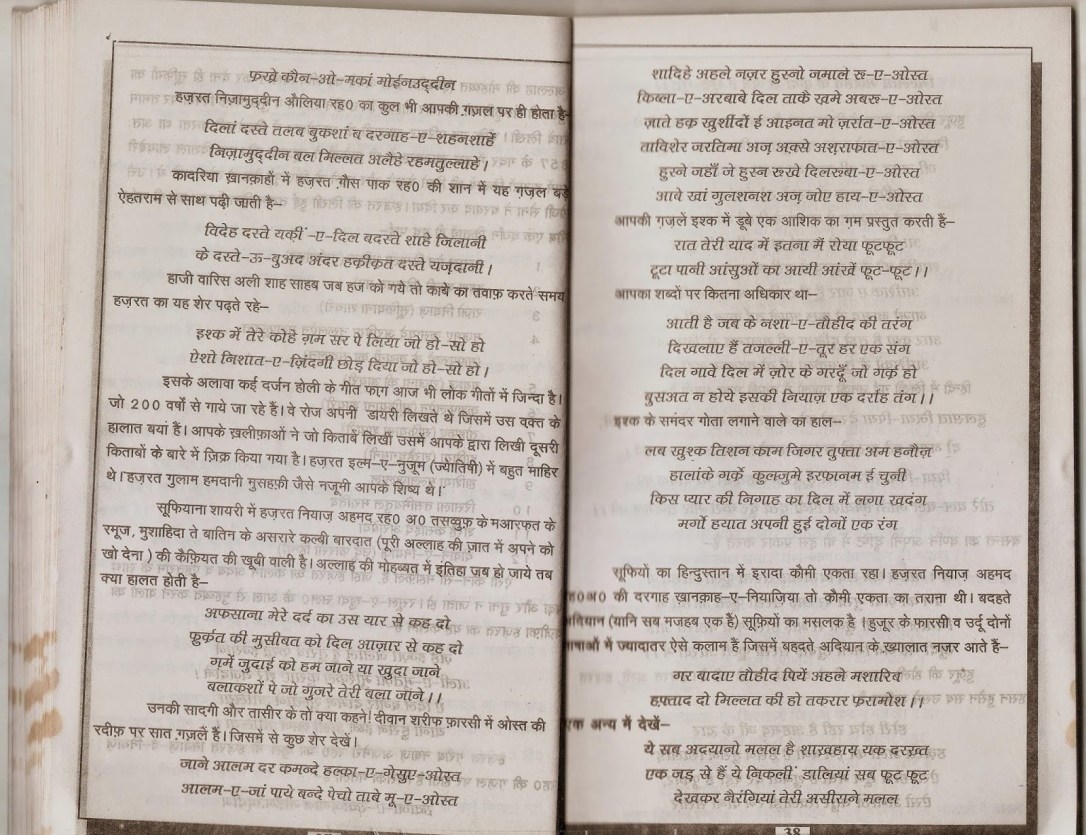 फ़ख्रे कौन-ओ-मकां मोईनउद्दीन
हज़रत निज़ामुद्दीन औलिया रह0 का कुल भी आपकी ग़ज़ल पर ही होता है-
दिलां दस्ते तलब बुकशां ब दरगाह-ए-शहनशाहें
निज़ामुद्दीन बल मिल्लत अलैहे रहमतुल्लाहे।
कादरिया ख़ानक़ाहों में हज़रत ग़ौस पाक रह0 की शान में यह गज़ल बड़े
ऐहतराम से साथ पढ़ी जाती है-
विदेह दस्ते यकीं -ए-दिल बदस्ते शाहे जिलानी
के दस्ते-ऊ-बुअद अंदर हक़ीक़त दस्ते यज़्दानी।
हाजी वारिस अली शाह साहब जब हज को गये तो काबे का तवाफ़ करते समय
हज़रत का यह शेर पढ़ते रहे-
इश्क में तेरे कोहे ग़म सर पे लिया जो हो-सो हो
ऐशो निशात-ए-ज़िंदगी छोड़ दिया जो हो-सो हो।
इसके अलावा कई दर्जन होली के गीत फाग आज भी लोक गीतों में जिन्दा है।
जो 200 वर्षों से गाये जा रहे हैं। वे रोज अपनी डायरी लिखते थे जिसमें उस वक़्त के
हालात बयां हैं। आपके ख़लीफ़ाओं ने जो किताबें लिखीं उसमें आपके द्वारा लिखी दूसरी
किताबों के बारे में ज़िक्र किया गया है। हज़रत इल्म-ए-नुजूम (ज्योतिषी) में बहुत माहिर
थे। हज़रत गुलाम हमदानी मुसहफ़ी जैसे नजूमी आपके शिष्य थे।
सूफियाना शायरी में हज़रत नियाज़ अहमद रह0 अ0 तसव्वुफ़ के मआरफत के
रमूज, मुशाहिदा ते बातिन के असरारे कल्बी बारदात (पूरी अल्लाह की ज़ात में अपने को
खो देना ) की कैफ़ियत की खूबी वाली है। अल्लाह की मोहब्बत में इंतिहा जब हो जाये तब
क्या हालत होती है-
अफ़साना मेरे दर्द का उस यार से कह दो
फुर्क़त की मुसीबत को दिल आज़ार से कह दो
ग़में जुदाई को हम जाने या ख़ुदा जाने
बलाकशों पे जो गुजरे तेरी बला जाने।।
उनकी सादगी और तासीर के तो क्या कहने! दीवान शरीफ़ फ़ारसी में ओस्त की
रदीफ़ पर सात ग़ज़लें हैं। जिसमें से कुछ शेर देखें।
जाने आलम दर कमन्दे हल्का-ए-गेसुए-ओस्त
आलम-ए-जां पाये बन्दे पेचो ताबे मू-ए-ओस्त
शादिहे अहले नज़र हुस्नो जमाले रू-ए-ओस्त
किब्ला-ए-अरबाबे दिल ताकें खमे अबरू-ए-ओस्त
ज़ाते हक़ खुर्शीदों ई आइनत मो ज़र्रात-ए-ओस्त
ताविशेर जरतिमा अज़ अक़्से अशराफात-ए-ओस्त
हुस्ने जहाँ जे हुस्न रूखे दिलरूबा-ए-ओस्त
आबे खां गुलशनश अज़ जोए हाय-ए-ओस्त
आपकी ग़ज़लें इश्क में डूबे एक आशिक का ग़म प्रस्तुत करती हैं-
रात तेरी याद में इतना मैं रोया फूटफूट
टूटा पानी आंसुओं का आयी आंखें फूट-फूट।।
आपका शब्दों पर कितना अधिकार था-
आती है जब के नशा-ए-तोहीद की तरंग
दिखलाए हैं तजल्ली-ए-तूर हर एक संग
दिल गावे दिल में ज़ोर के गरदूँ जो गर्क़ हो
वुसअत न होये इसकी नियाज़ एक दर्राह तंग।।
इश्क के समंदर गोता लगाने वाले का हाल-
लब खुश्क तिशन काम जिगर तुफ्ता अम हनौज़
हालांके गर्के कुलजुमे इरफ़ानम ई चुनी
किस प्यार की निगाह का दिल में लगा खदंग
मर्गो हयात अपनी हुई दोनों एक रंग
सूफियों का हिन्दुस्तान में इरादा कौमी एकता रहा। हज़रत नियाज़ अहमद
रह0अ0 की दरगाह ख़ानक़ाह-ए-नियाज़िया तो कौमी एकता का तराना थी। बदहते
अदियान (यानि सब मजहब एक हैं) सूफ़ियों का मसलक है। हुजूर के फारसी व उर्दू दोनों
भाषाओं में ज्यादातर ऐसे कलाम हैं जिसमें बहदते अदियान के ख़्यालात नज़र आते हैं-
गर बादाए तोहीद पियें अहले मशारिब
हफ़्ताद दो मिल्लत की हो तकरार फ़रामोश।।
एक अन्य में देखें-
ये सब अदयानो मलल है शाख़हाय यक दरख़्त
एक जड़ से हैं ये निकलीं डालियां सब फूट फूट
देखकर नैरंगियां तेरी असीराने मलल
38